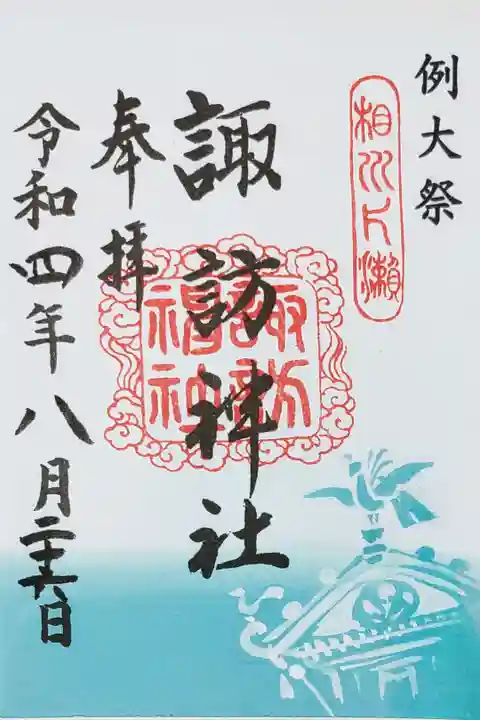 例大祭
相州片瀬
諏訪神社
諏訪
神社
奉拝
令和四年八月二十六日